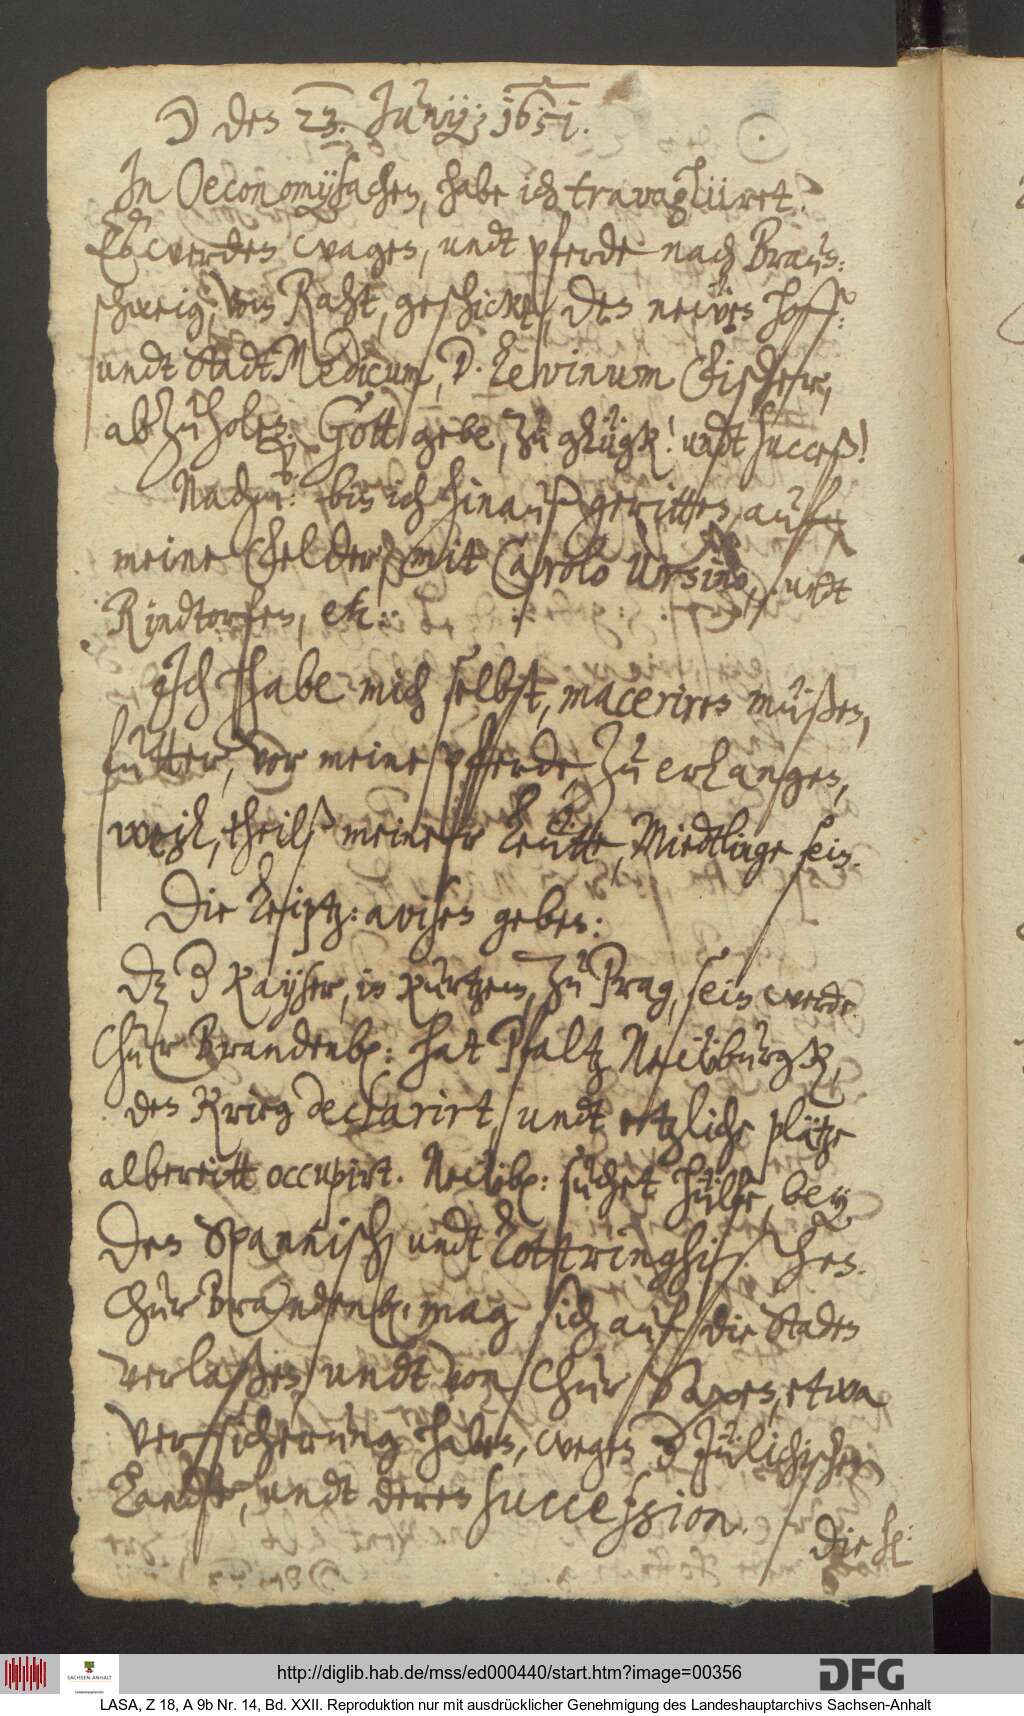 ☽ den 23. Junij; 1651.
In Oeconomysachen, habe ich travaglüret.
Es werden wagen, undt pferde nach Braun:
schweig, von Raht, geschickt, den neẅen Hoff:
undt StadtMedicum, D. Levinum Fischern,
abzuholen. Gott gebe, zu glügk! undt succeß!
Nachm: bin ich hinauß geritten, aufn
meine Felder, mit Carolo Ursino, undt
Rindtorfen, etc:
Ich habe mich selbst, maceriren müßen,
futter, vor meine pferde, zu erlangen,
weil, theilß meiner Leütte, Miedtlinge sein.
Die Leiptz: avisen geben:
Dz der Kayser, in kurtzem, zu Prag, sein werde.
Chur Brandenb: hat Pfaltz Neẅburgk,
den Krieg declarirt, undt etzliche plätze
albereitt occupirt. Neẅb: suchet hülfe, bey
den Spannisch, undt Lottringhischen.
Chur Brandenb: mag sich auf die Staden
verlaßen, undt von Chur Saxen, etwa
versicherung haben, wegen der Jülichischen
Lande, undt deren succession.
Die
http://diglib.hab.de/mss/ed000440/start.htm?image=00356
SACHSEN-ANHALT
Landeshauptarchiv
DFG
LASA, Z 18, A 9b Nr. 14, Bd. XXII. Reproduktion nur mit ausdrücklicher Genehmigung des Landeshauptarchivs Sachsen-Anhalt